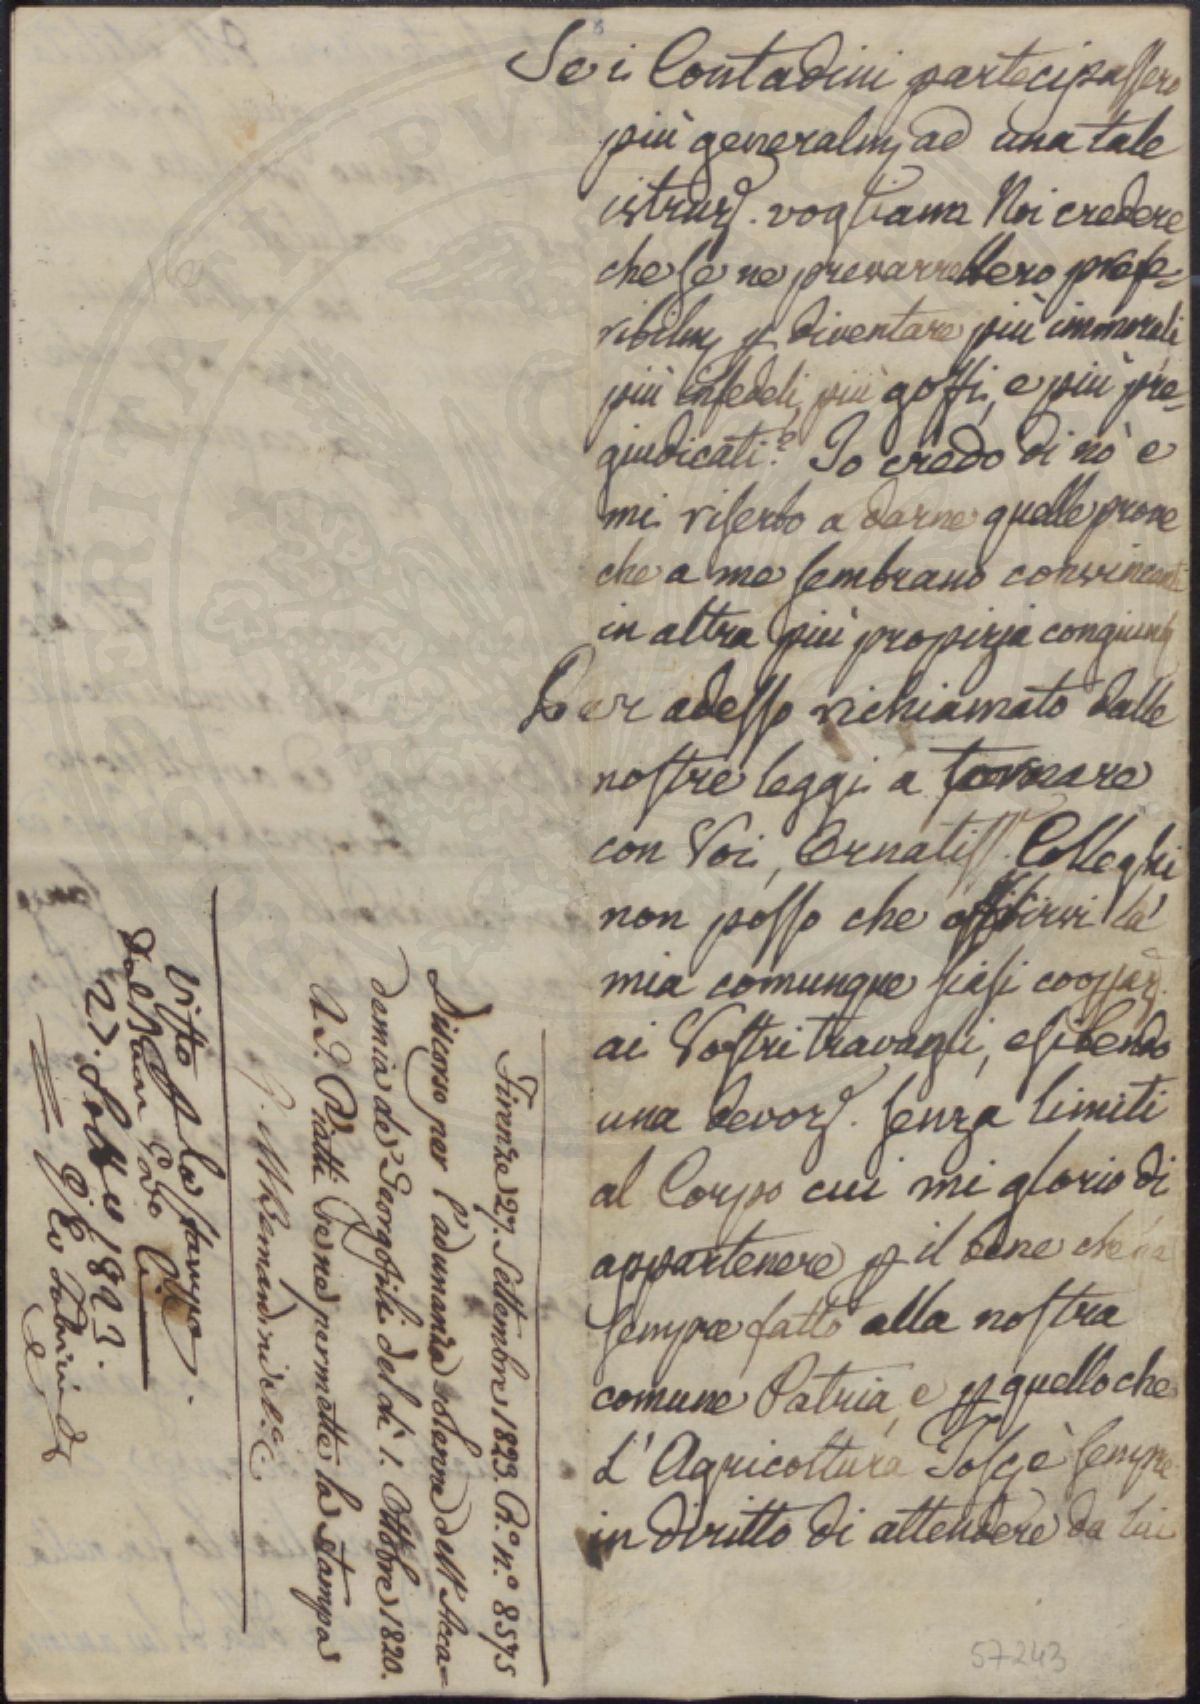 Se i Contadini partecipassero
più generalm. ad una tale
istruz. vogliama Noi credere
che se ne prevarrebbero prefe-
ribilm. p diventare più immorali
più infedeli, più goffi, e più pre-
giudicati? Io credo di nò e
mi riserbo a darne quelle prove
che a me sembrano convincenti
in altra più propizia congiunt.
Per adesso richiamato dalle
nostre leggi a tornare
con Voi, Ornatiss. Colleghi
non posso che offrirvi la
mia comunque siasi cooperaz.
ai Vostri travagli, esibendo
una devoz. senza limiti
al Corpo cui mi glorio di
appartenere p il bene che ha
sempre fatto alla nostra
comune Patria, e p quello che
L'Agricoltura Tosc. è sempre
in diritto di attendere da lui
Firenze 27. Settembre 1823. R.o n.o 8575
Discorso per l'adunanza solenne dell'Acca=
demia de' Georgofili del dì 1. Ottobre 1820.
A. S. P. Piatti Se ne permette la stampa
Visto p la stampa.
27. Sett.e 1823.
57243